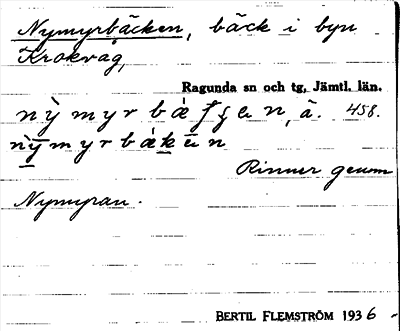 Nymyrbäcken, bäck i byn
Krokvåg,
Ragunda sn och tg, Jämtl. län.
458.
Rinner genom
Nymyran.
BERTIL FLEMSTRÖM 1936